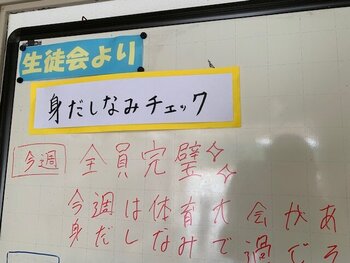 生徒会より
身だしなみチェック
今週 全員完璧✧✧
今週は体育大会があ
身だしなみで過ごそ